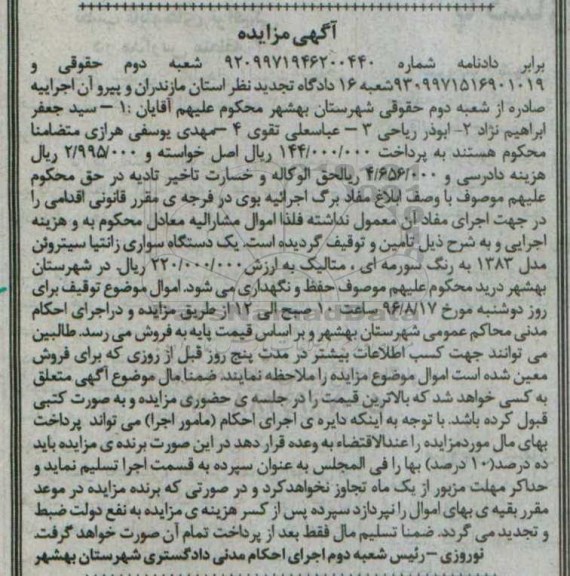 آگهی مزایده
برابر دادنامه شماره ۹۲۰۹۹۷۱۹۴۶۲۰۰۴۴۰ شعبه دوم حقوقی و
۹۳۰۹۹۷۱۵۱۶۹۰۱۰۱۹شعبه ۱۶ دادگاه تجدید نظر استان مازندران و پیرو آن اجراییه
صادره از شعبه دوم حقوقی شهرستان بهشهر محکوم علیهم آقایان :۱ – سید جعفر
ابراهیم نژاد ۲- ابوذر ریاحی ۳ – عباسعلی تقوی ۴ –مهدی یوسفی هرازی متضامنا
محکوم هستند به پرداخت ۱۴۴/۰۰۰/۰۰۰ ریال اصل خواسته و ۲/۹۹۵/۰۰۰ ریال
هزینه دادرسی و ۴/۶۵۶/۰۰۰ ریالحق الوکاله و خسارت تاخیر تادیه در حق محکوم
علیهم موصوف با وصف ابلاغ مفاد برگ اجرائیه بوی در فرجه ی مقرر قانونی اقدامی را
در جهت اجرای مفاد آن معمول نداشته فلذا اموال مشارالیه معادل محکوم به و هزینه
اجرایی و به شرح ذیل تامین و توقیف گردیده است. یک دستگاه سواری زانتیا سیتروئن
مدل ۱۳۸۳ به رنگ سورمه ای ، متالیک به ارزش ۲۲۰/۰۰۰/۰۰۰ ریال. در شهرستان
بهشهر درید محکوم علیهم موصوف حفظ و نگهداری می شود. اموال موضوع توقیف برای
روز دوشنبه مورخ ۹۶/۸/۱۷ ساعت ۱۰ صبح الی ۱۲از طریق مزایده و دراجرای احکام
مدنی محاکم عمومی شهرستان بهشهر و بر اساس قیمت پایه به فروش می رسد. طالبین
می توانند جهت کسب اطلاعات بیشتر در مدت پنج روز قبل از روزی که برای فروش
معین شده است اموال موضوع مزایده را ملاحظه نمایند. ضمنا مال موضوع آگهی متعلق
به کسی خواهد شد که بالاترین قیمت را در جلسه ی حضوری مزایده و به صورت کتبی
قبول کرده باشد. با توجه به اینکه دایره ی اجرای احکام (مامور اجرا) می تواند پرداخت
بهای مال موردمزایده را عندالاقتضاء به وعده قرار دهد در این صورت برنده ی مزایده باید
ده درصد(۱۰ درصد) بها را فی المجلس به عنوان سپرده به قسمت اجرا تسلیم نماید و
حداکر مهلت مزبور از یک ماه تجاوز نخواهدکرد و در صورتی که برنده مزایده در موعد
مقرر بقیه ی بهای اموال را نپردازد سپرده پس از کسر هزینه ی مزایده به نفع دولت ضبط
و تجدید می گردد. ضمنا تسلیم مال فقط بعد از پرداخت تمام آن صورت خواهد گرفت.
نوروزی – رئیس شعبه دوم اجرای احکام مدنی دادگستری شهرستان بهشهر